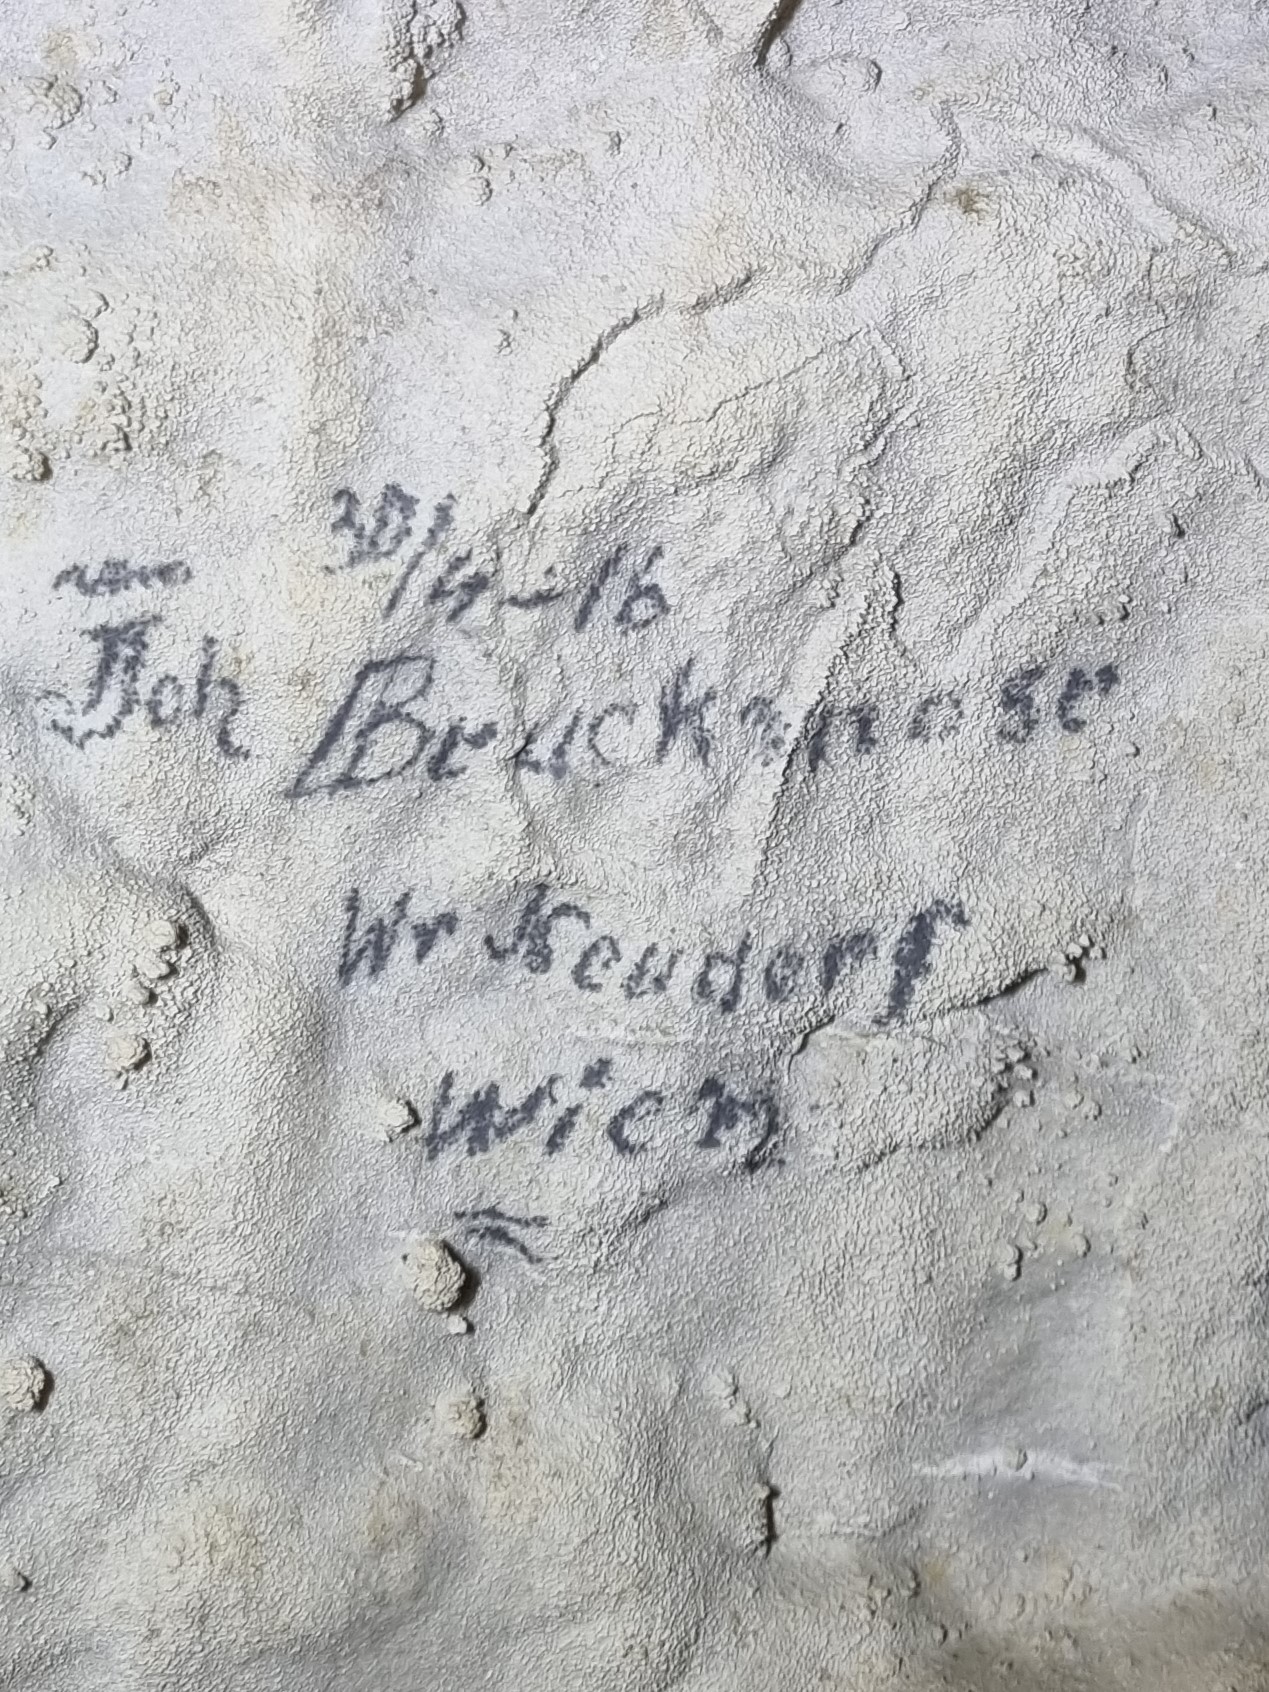 30/4-16
Joh Bruckmoser
Wr Neudorf
Wien